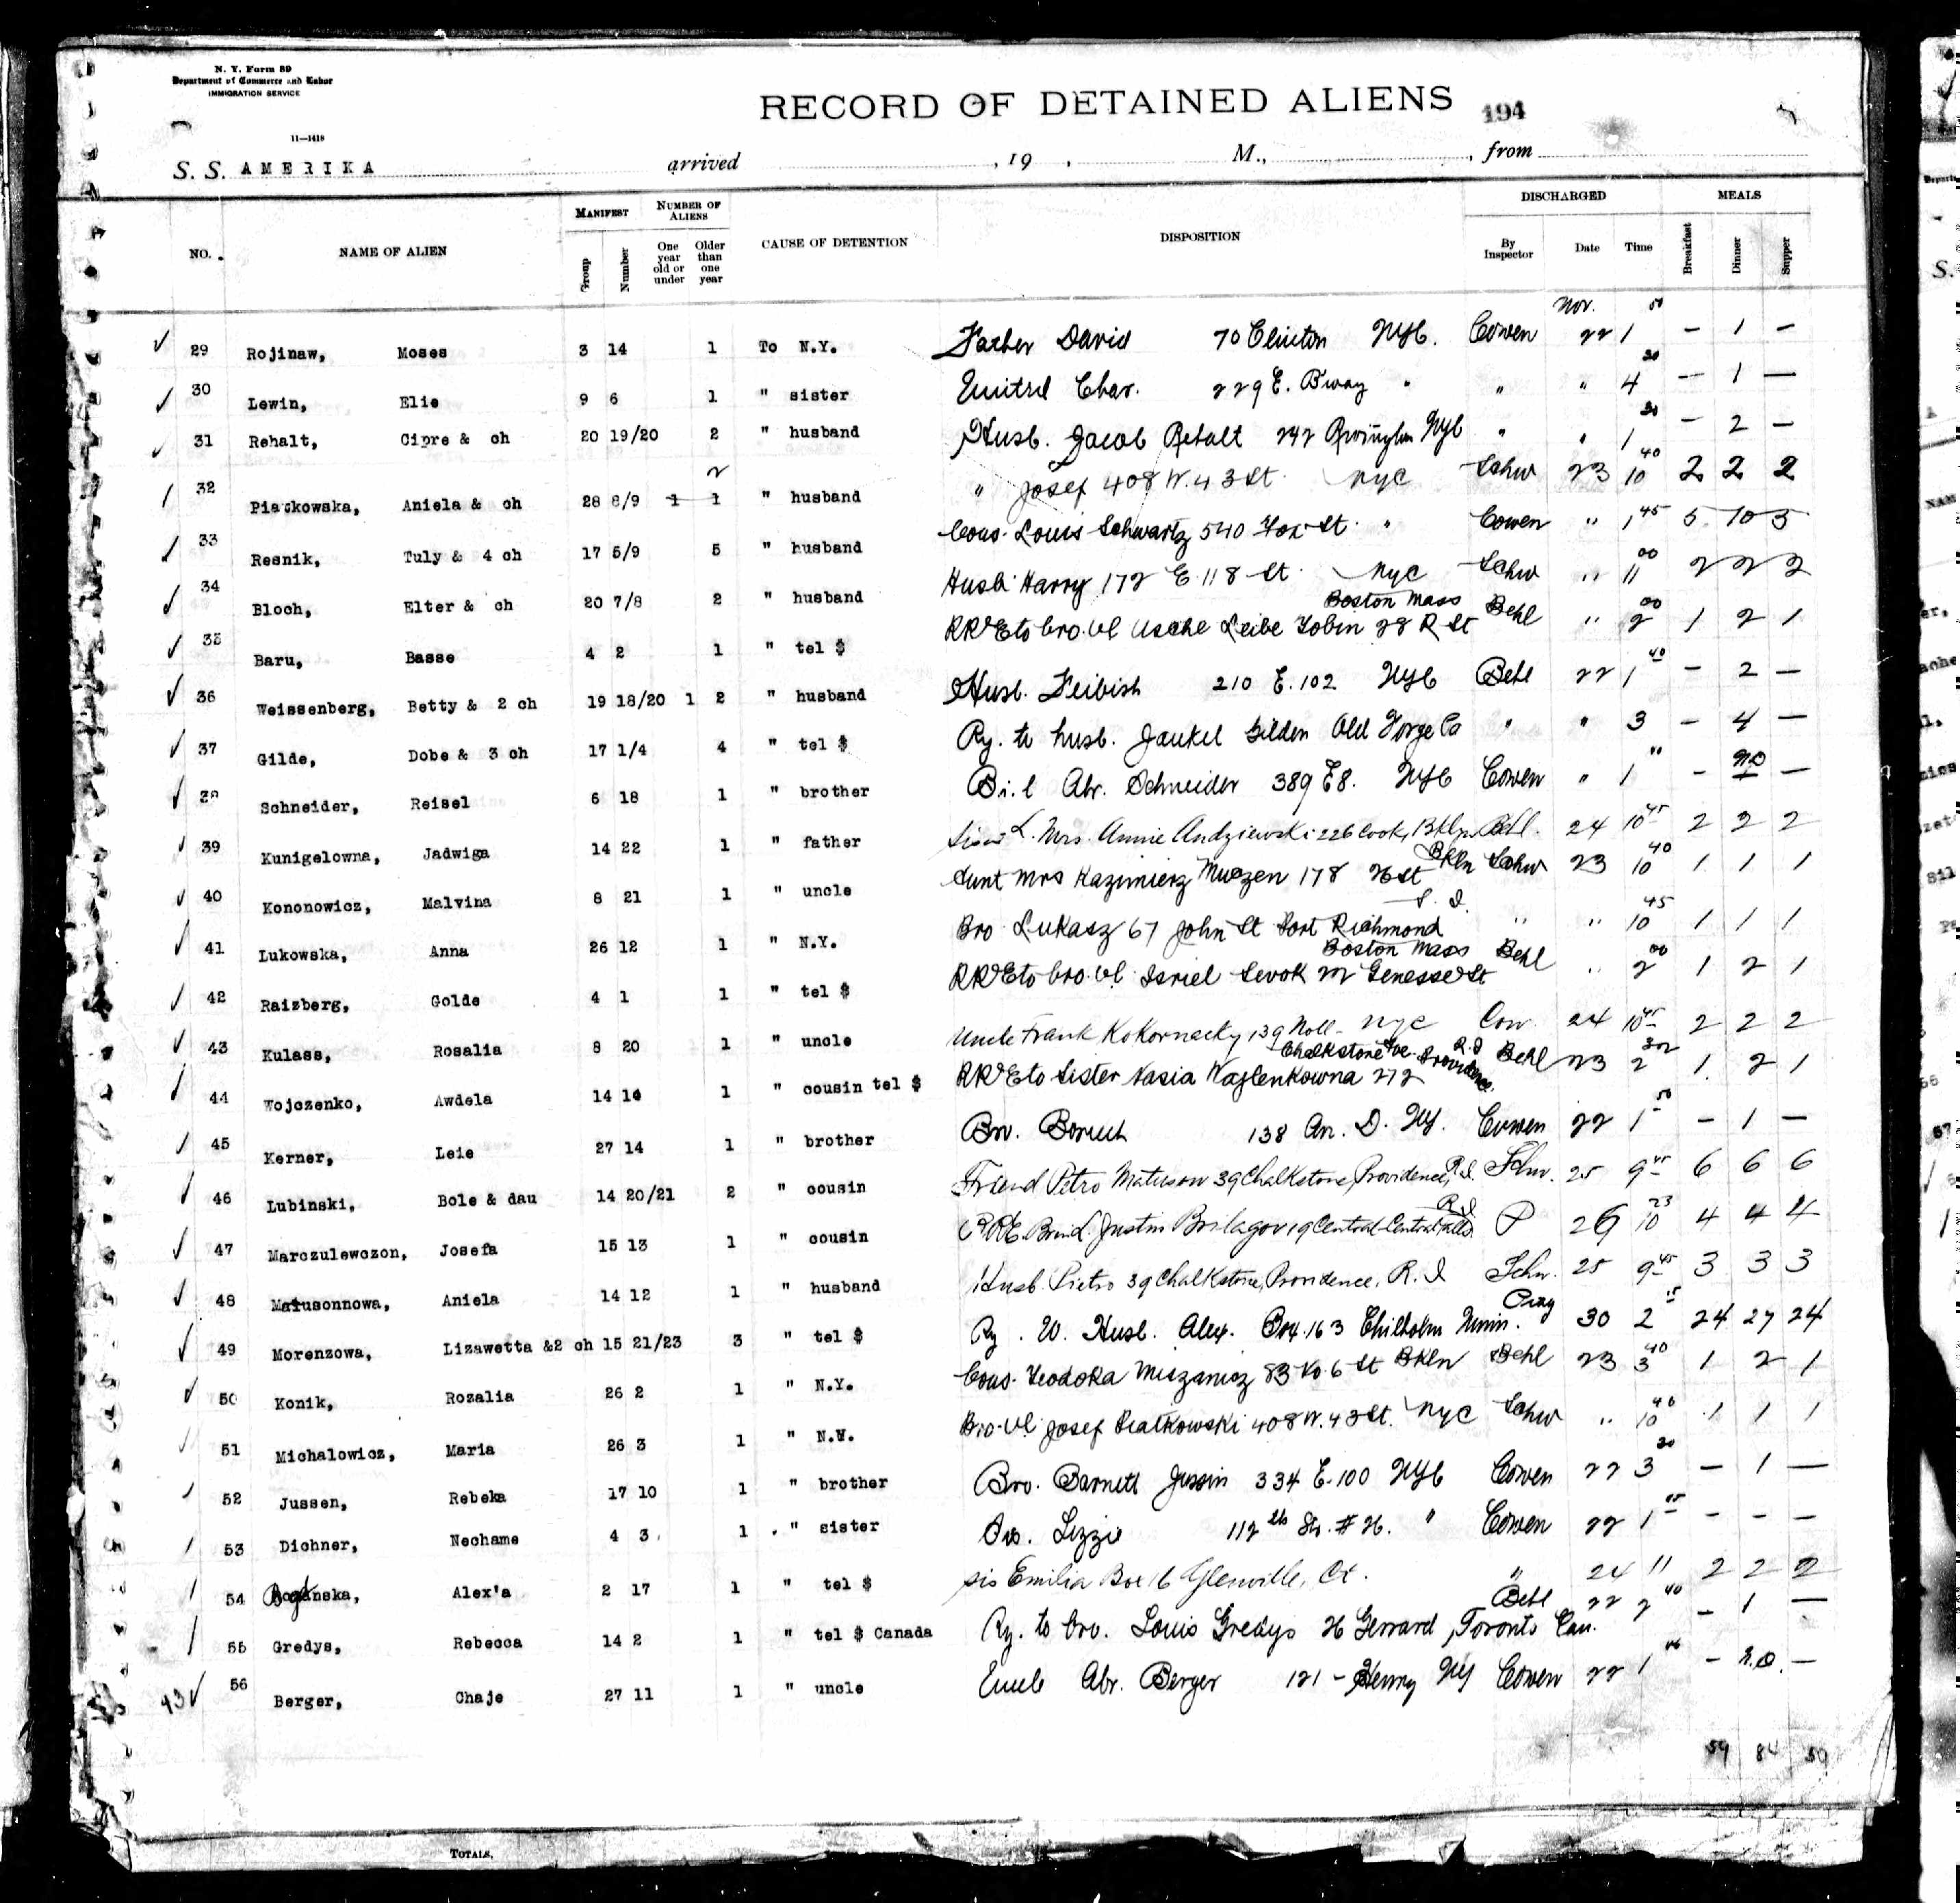 N. Y. Form 89
Department of Commerce and Labor
IMMIGRATION SERVICE
11—1418
RECORD OF DETAINED ALIENS 194
S. S. AMERIKA arrived , 19 , M., , from
NO. NAME OF ALIEN MANIFEST Group Number NUMBER OF ALIENS One year old or under Older than one year CAUSE OF DETENTION DISPOSITION DISCHARGED By Inspector Date Time MEALS Breakfast Dinner Supper
Nov.
29 Rojinaw, Moses 3 14 1 To N.Y. Father David 70 Clinton NYC. Cowen 22 1 50 – 1 –
30 Lewin, Elie 9 6 1 " sister 229 E. Bway " " " 4 30 – 1 –
31 Rehalt, Cipre & ch 20 19/20 2 " husband Husb. Jacob Rehalt 242 Rivington NYC " " 1 30 – 2 –
32 Piackowska, Aniela & ch 28 8/9 1 1 2 " husband " Josef 408 W. 43 St. NYC Schw 23 10 40 2 2 2
33 Resnik, Tuly & 4 ch 17 5/9 5 " husband Cous. Louis Schwartz 540 Fox St. " Cowen " 1 45 5 10 5
34 Bloch, Elter & ch 20 7/8 2 " husband Husb Harry 172 E 118 St. NYC Schw " 11 00 2 2 2
35 Baru, Basse 4 2 1 " tel $ to bro. Leibe 28 R St Boston Mass Behl " 2 00 1 2 1
36 Weissenberg, Betty & 2 ch 19 18/20 1 2 " husband Husb. Feibish 210 E. 102 NYC Behl 22 1 40 – 2 –
37 Gilde, Dobe & 3 ch 17 1/4 4 " tel $ Ry. to husb. Jankel Gilden Old Forge Pa " " 3 – 4 –
38 Schneider, Reisel 6 18 1 " brother B.i.l Abr. Schneider 389 E 8. NYC Cowen " 1 – –
39 Kunigelowna, Jadwiga 14 22 1 " father Mrs. Annie Andziewski 226 Cook, Bklyn Behl. 24 10 45 2 2 2
40 Kononowicz, Malvina 8 21 1 " uncle Aunt Mrs Kazimierz 178 St Bkln Schw 23 10 40 1 1 1
41 Lukowska, Anna 26 12 1 " N.Y. Bro Lukasz 67 John St Port Richmond S. I. " " 10 45 1 1 1
42 Raizberg, Golde 4 1 1 " tel $ to bro. Isriel Genesse St Boston Mass Behl " 2 00 1 2 1
43 Kulass, Rosalia 8 20 1 " uncle Uncle Frank Kokornacky 139 Noll – NYC Cow. 24 10 45 2 2 2
44 Wojczenko, Awdela 14 14 1 " cousin tel $ to Sister Nasia Wajlenkowna 272 Chalkstone Ave. Providence R.I Behl 23 2 30 1 2 1
45 Kerner, Leie 27 14 1 " brother Bro. Boruch 138 Av. D. NY. Cowen 22 1 50 – 1 –
46 Lubinski, Bole & dau 14 20/21 2 " cousin Friend Petro Matuson 39 Chalkstone, Providence, R.I. Schw. 25 9 45 6 6 6
47 Marczulewczon, Josefa 15 13 1 " cousin Justin 19 Central Central Falls R.I P 26 10 23 4 4 4
48 Matusonnowa, Aniela 14 12 1 " husband Husb. Pietro 39 Chalkstone, Providence, R. I Schw. 25 9 45 3 3 3
49 Morenzowa, Lizawetta &2 ch 15 21/23 3 " tel $ Ry. to. Husb. Alex. Box 163 Chilholm Minn. 30 2 15 24 27 24
50 Konik, Rozalia 26 2 1 " N.Y. Cous. Teodora 83 No. 6 St Bkln Behl 23 3 40 1 2 1
51 Michalowicz, Maria 26 3 1 " N.W. Josef Piatkowski 408 W. 43 St. NYC Schw " 10 40 1 1 1
52 Jussen, Rebeka 17 10 1 " brother Bro. Barnett Jussin 334 E. 100 NYC Cowen 22 3 30 – 1 –
53 Dichner, Nechame 4 3 1 " sister Sis. Lizzie 112 th Str. # 26. " Cowen 22 1 – – –
54 Alex'a 2 17 1 " tel $ sis Emilia Box 16 Glenville, Ct. " 24 11 2 2 2
55 Gredys, Rebecca 14 2 1 " tel $ Canada Ry. to bro. Louis Gredys 26 Gerrard, Toronto Can. Behl 22 2 40 – 1 –
93 56 Berger, Chaje 27 11 1 " uncle Uncle Abr. Berger 121 – Henry NY Cowen 22 1 – –
59 84 59
TOTALS,